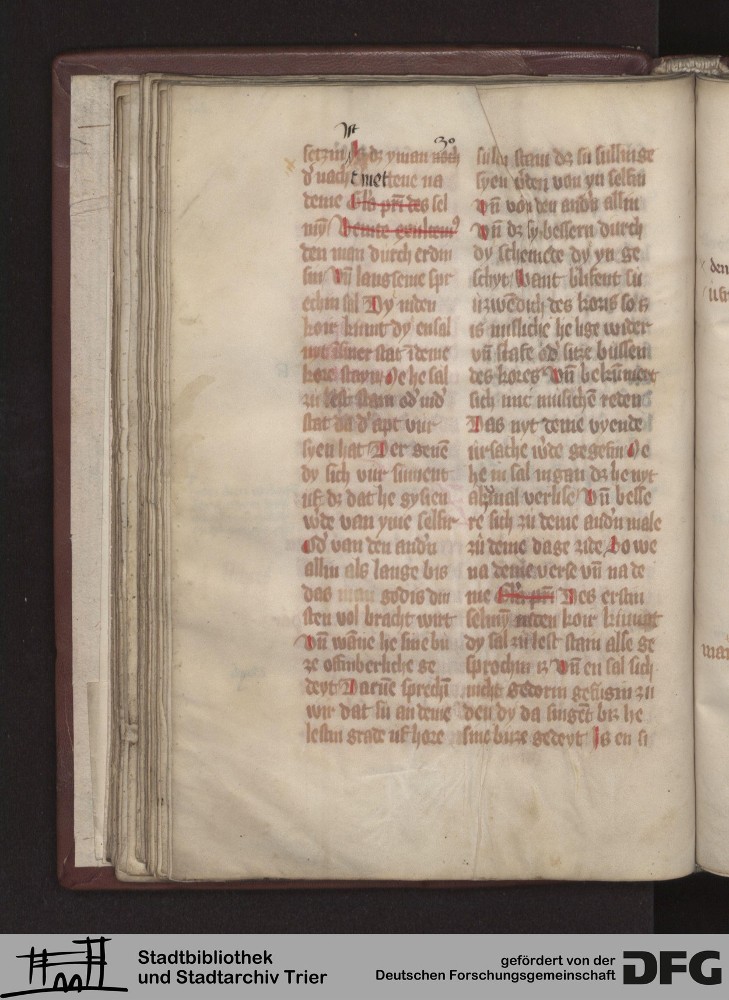 Ist
setzin dz yman nach
d' nacht mettene na
deme gl'a pr̄i des sel
my' deme
den man durch erdin
sin Vn̄ langseme spr
echin sal Dy in den
koir kumt dy en sal
nyt
kore stayn Me he sal
zu lest stain od' in d'
stat da d' apt vur
syen hat Der gene
dy sich vur sument
uf dz dat he gysien
w'de van yme selfir
Od' van den and'n
allin als lange bis
das godis din
sten vol bracht wirt
Vn̄ wāne he sine bu
ze offinberliche ge
deyt Darūe sprechī
wir dat sū an deme
lestin grade uf hore
sulin stain dz sū sullinge
syen w'den von yn selfin
Vn̄ von den and'n allin
Vn̄ dz sy bessern durch
dy schemede dy yn ge
schyt Want blifent sū
uzwēdich des koris so is
is misliche he lige wider
vn̄ slafe od' sitze bussen
des kores Vn̄ bekūmere
sich mit mislichē reden
Das nyt deme vyende
ursache w'de gegefin Me
he in sal ingan dz he nyt
alzumal verlise Vn̄ besse
re sich zū deme and'n male
zū deme dage zide So we
na deme verse vn̄ na de
me gl'a pr̄i Des erstin
selmy' in den koir kumit
dy sal zū lest stain alse ge
sprochin is Vn̄ en sal sich
nicht gedorin gefugin zū
den dy da singēt biz he
sine buze gedeyt Is en si
den
Stadtbibliothek
und Stadtarchiv Trier
gefördert von der
Deutschen Forschungsgemeinschaft
DFG